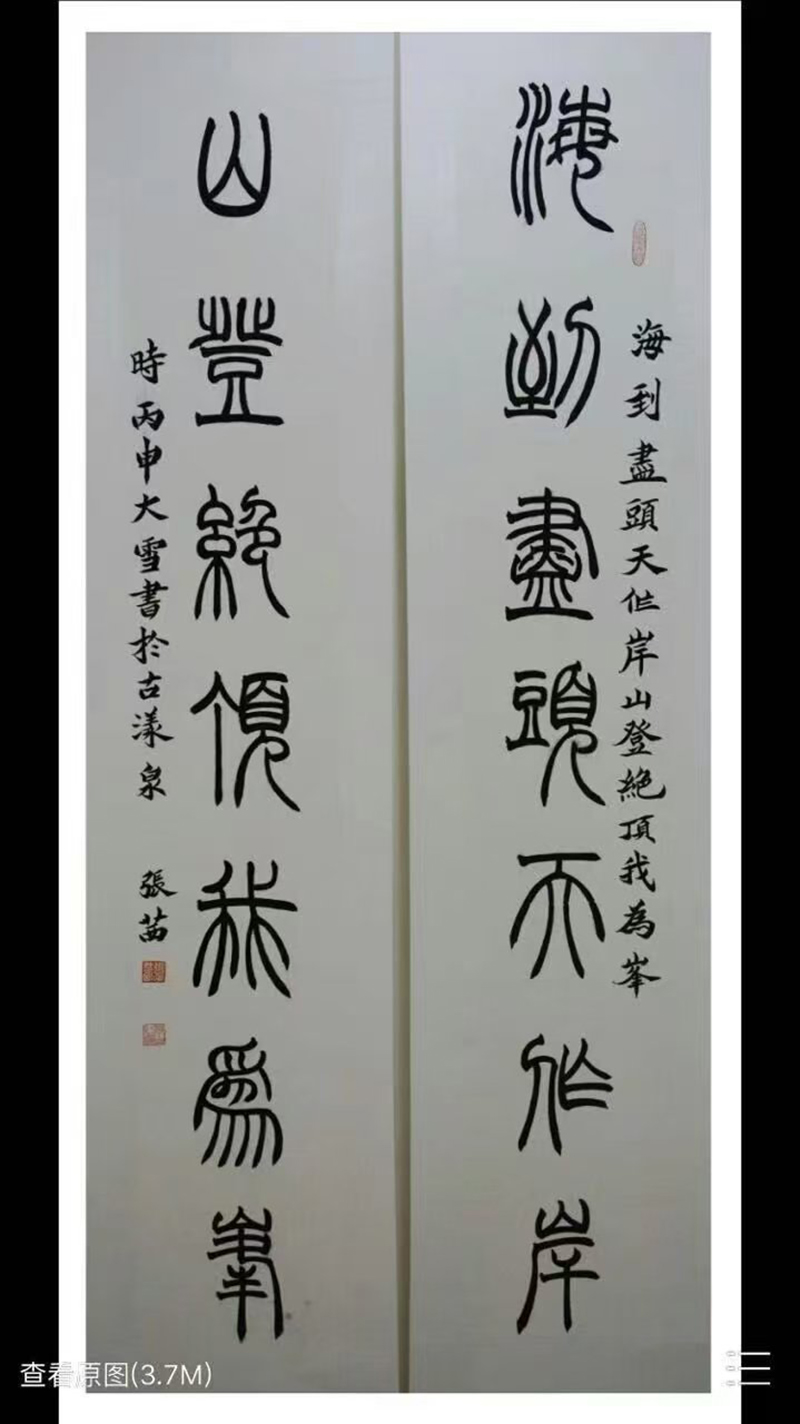 海到盡頭天作岸
海到盡頭天作岸山登絕頂我為峯
山登絕頂我為峯
時丙申大雪書於古漾泉 張茁
查看原图(3.7M)